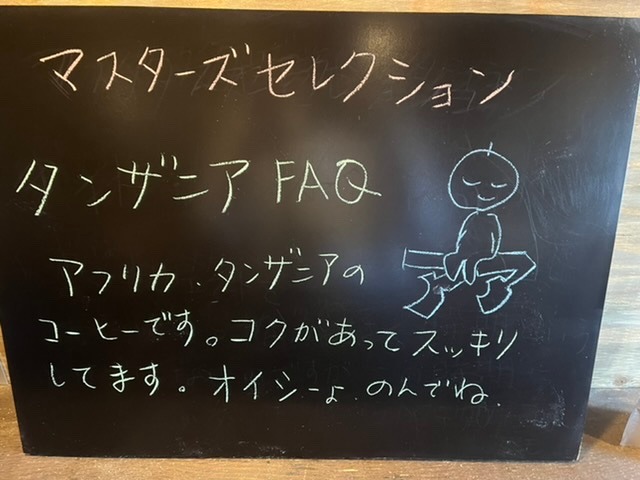 マスターズセレクション
タンザニア FAQ
アフリカ、タンザニアの
コーヒーです。コクがあってスッキリ
してます。オイシーよ、のんでね、